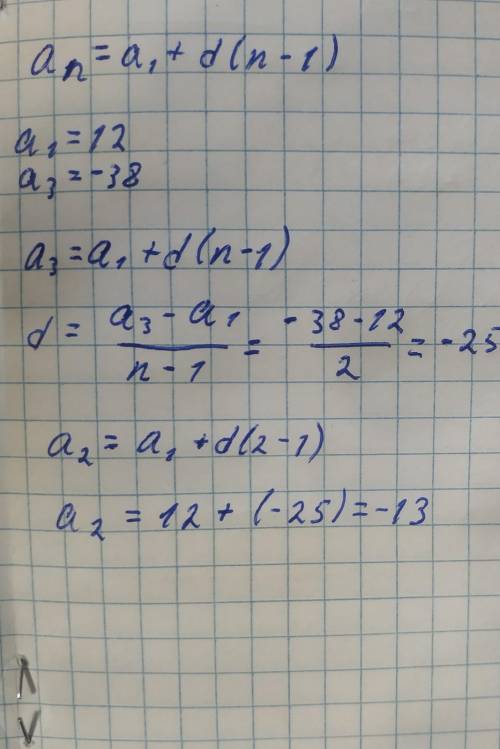 aₙ = a₁ + d(n - 1)
a₁ = 12
a₃ = -38
a₃ = a₁ + d(n-1)
d = (a₃ - a₁)/(n - 1) = (-38-12)/2 = -25
a₂ = a₁ + d(2-1)
a₂ = 12 + (-25) = -13